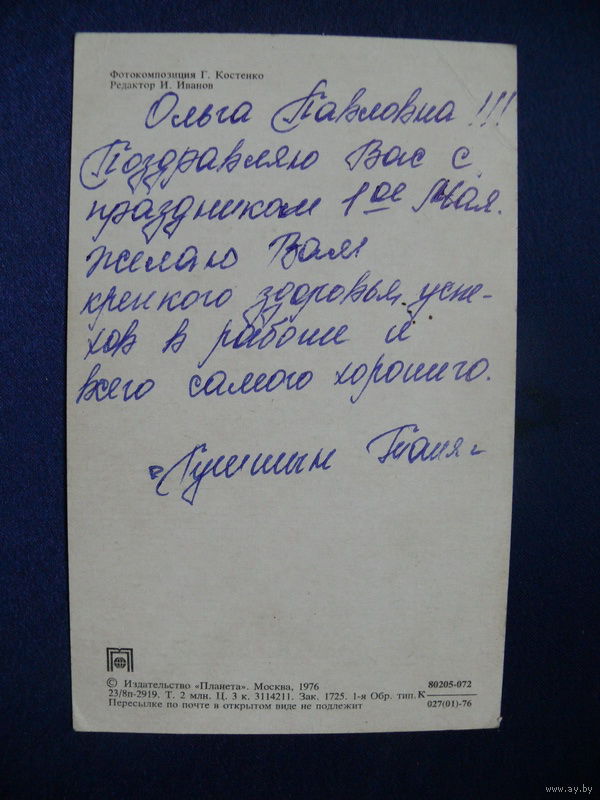 Фотокомпозиция Г. Костенко
Редактор И. Иванов
Ольга Павловна!!!
Поздравляю Вас с
праздником 1ое Мая.
Желаю Вам
крепкого здоровья, успе-
хов в работе и
всего самого хорошего.
Таня
© Издательство «Планета». Москва, 1976
23/8п-2919. Т. 2 млн. Ц. 3 к. 3114211. Зак. 1725. 1-я Обр. тип. К 80205-072
027(01)-76
Пересылке по почте в открытом виде не подлежит
www.ay.by